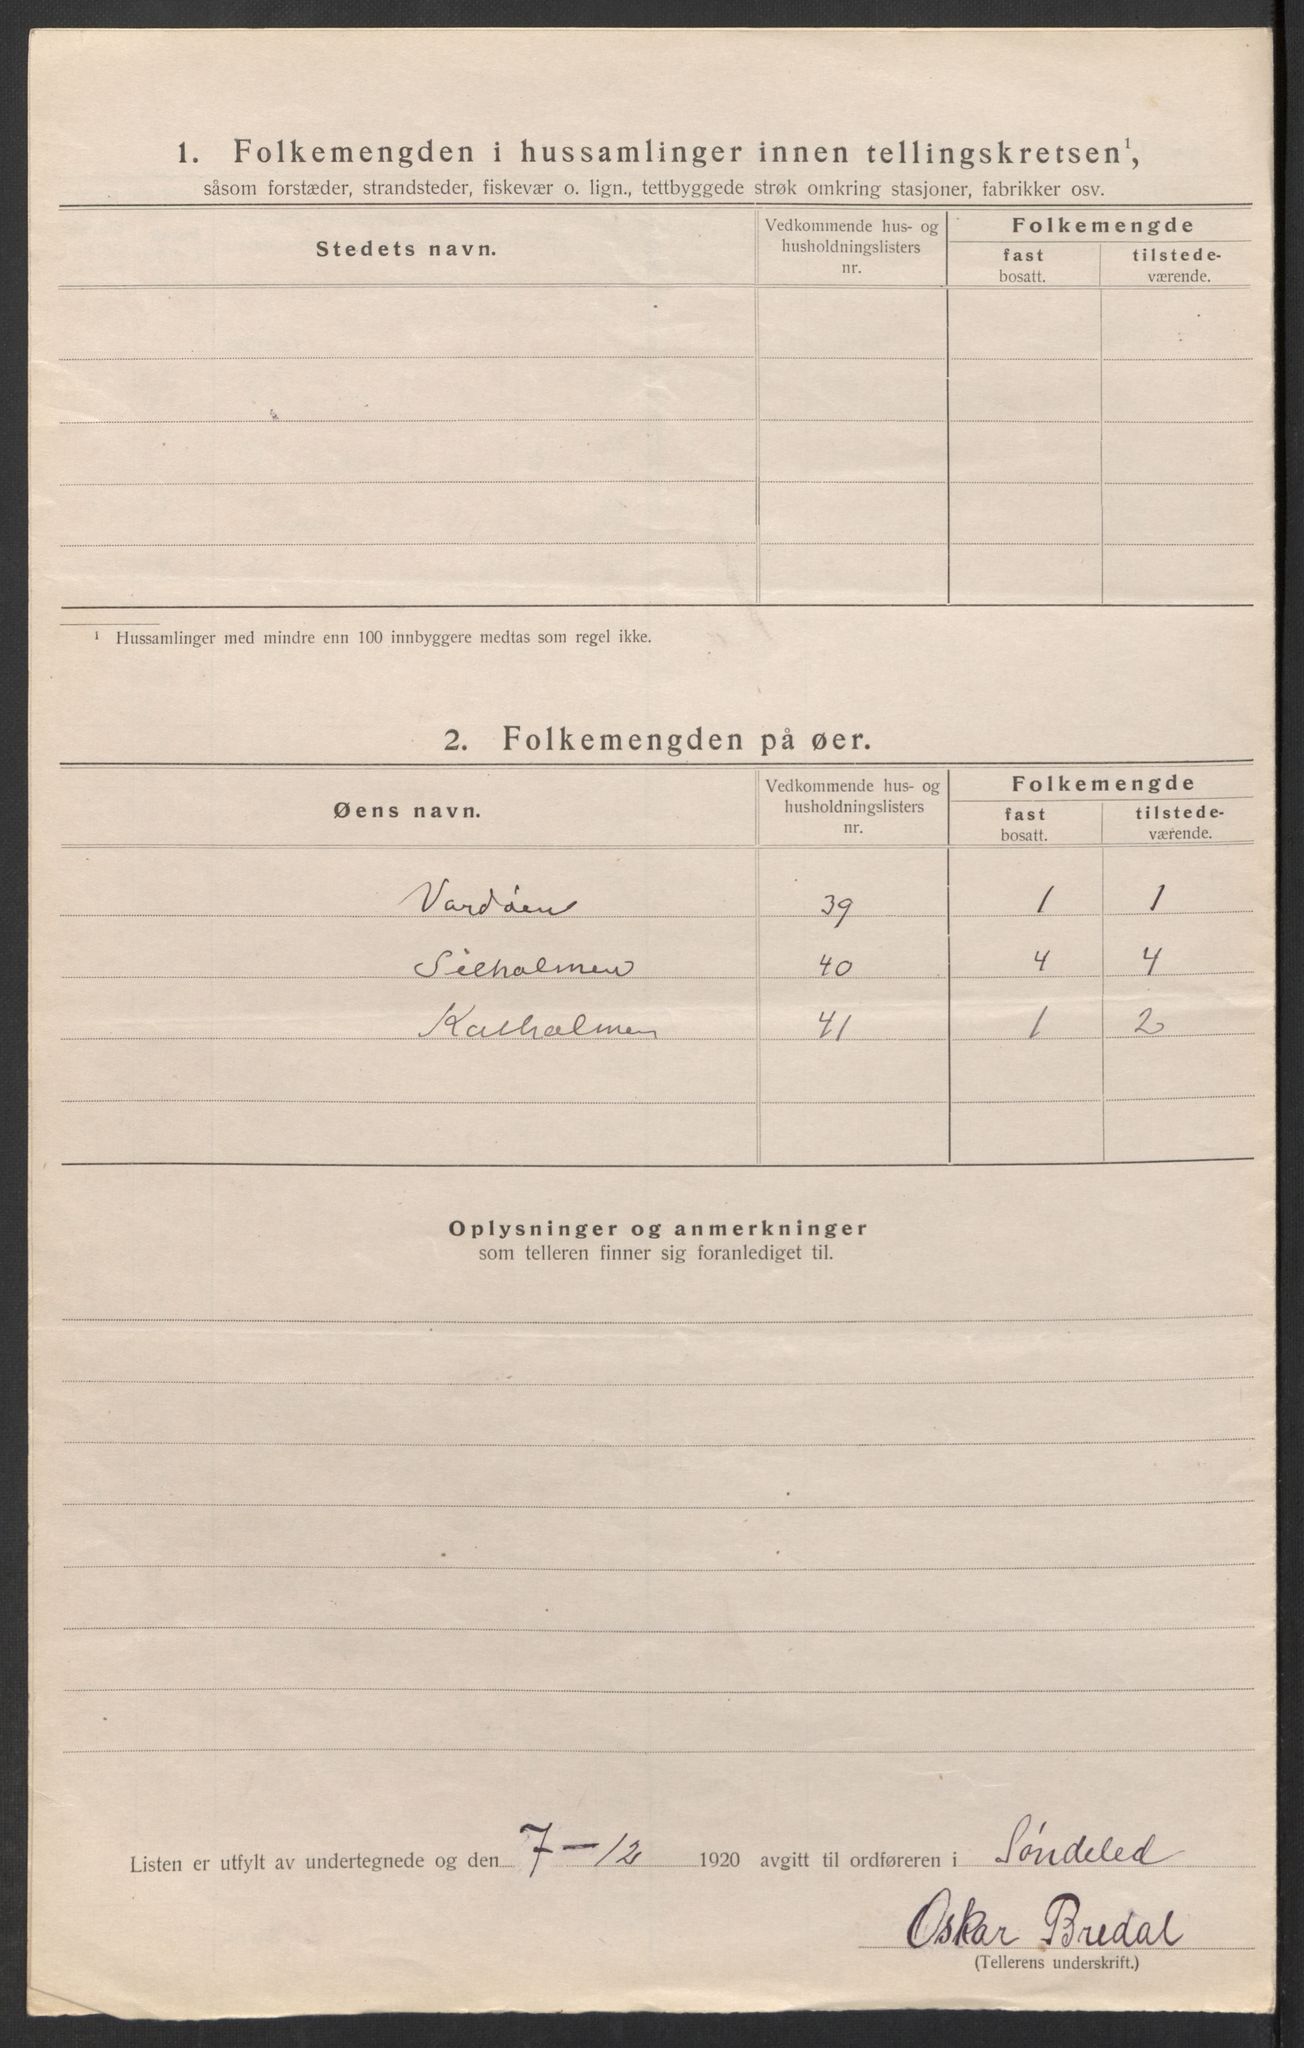 1. Folkemengden i hussamlinger innen tellingskretsen¹,
såsom forstæder, strandsteder, fiskevær o. lign., tettbyggede strøk omkring stasjoner, fabrikker osv.
Stedets navn.
Vedkommende hus- og
husholdningslisters
nr.
Folkemengde
fast
bosatt.
tilstede-
værende.
¹ Hussamlinger med mindre enn 100 innbyggere medtas som regel ikke.
2. Folkemengden på øer.
Øens navn.
Vedkommende hus- og
husholdningslisters
nr.
Folkemengde
fast
bosatt.
tilstede-
værende.
Vardøen 39 1 1
Silholmen 40 4 4
Kalholmen 41 1 2
Oplysninger og anmerkninger
som telleren finner sig foranlediget til.
Listen er utfylt av undertegnede og den 7-12 1920 avgitt til ordføreren i Søndeled
Oskar Bredal
(Tellerens underskrift.)